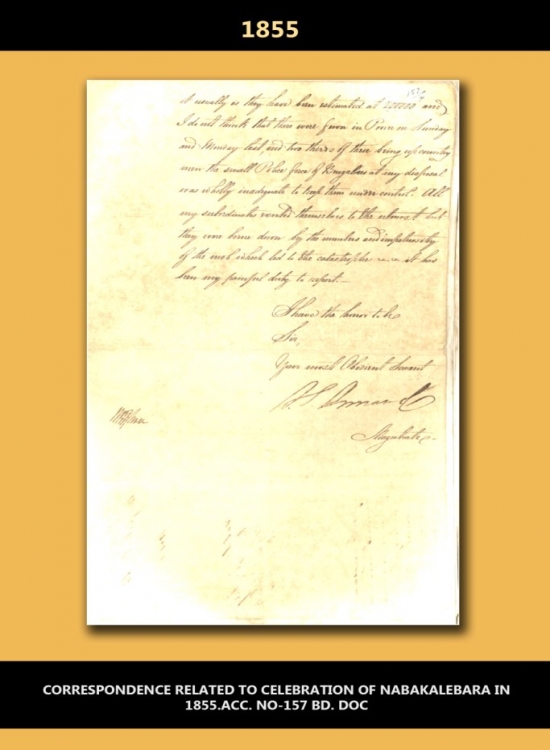 1855
it usually as they have been estimated at 200000 and
I do not think that there were fewer in Pooree on Sunday
and Monday last and two thirds of these being up country
men the small Police force of at my disposal
was wholly inadequate to keep them under control. All
my subordinates exerted themselves to the utmost but
they were borne down by the numbers and impetuosity
of the mob which led to the catastrophe it has
been my painful duty to report.—
I have the honor to be
Sir,
Your most Obedient Servant
Magistrate
CORRESPONDENCE RELATED TO CELEBRATION OF NABAKALEBARA IN
1855.ACC. NO-157 BD. DOC